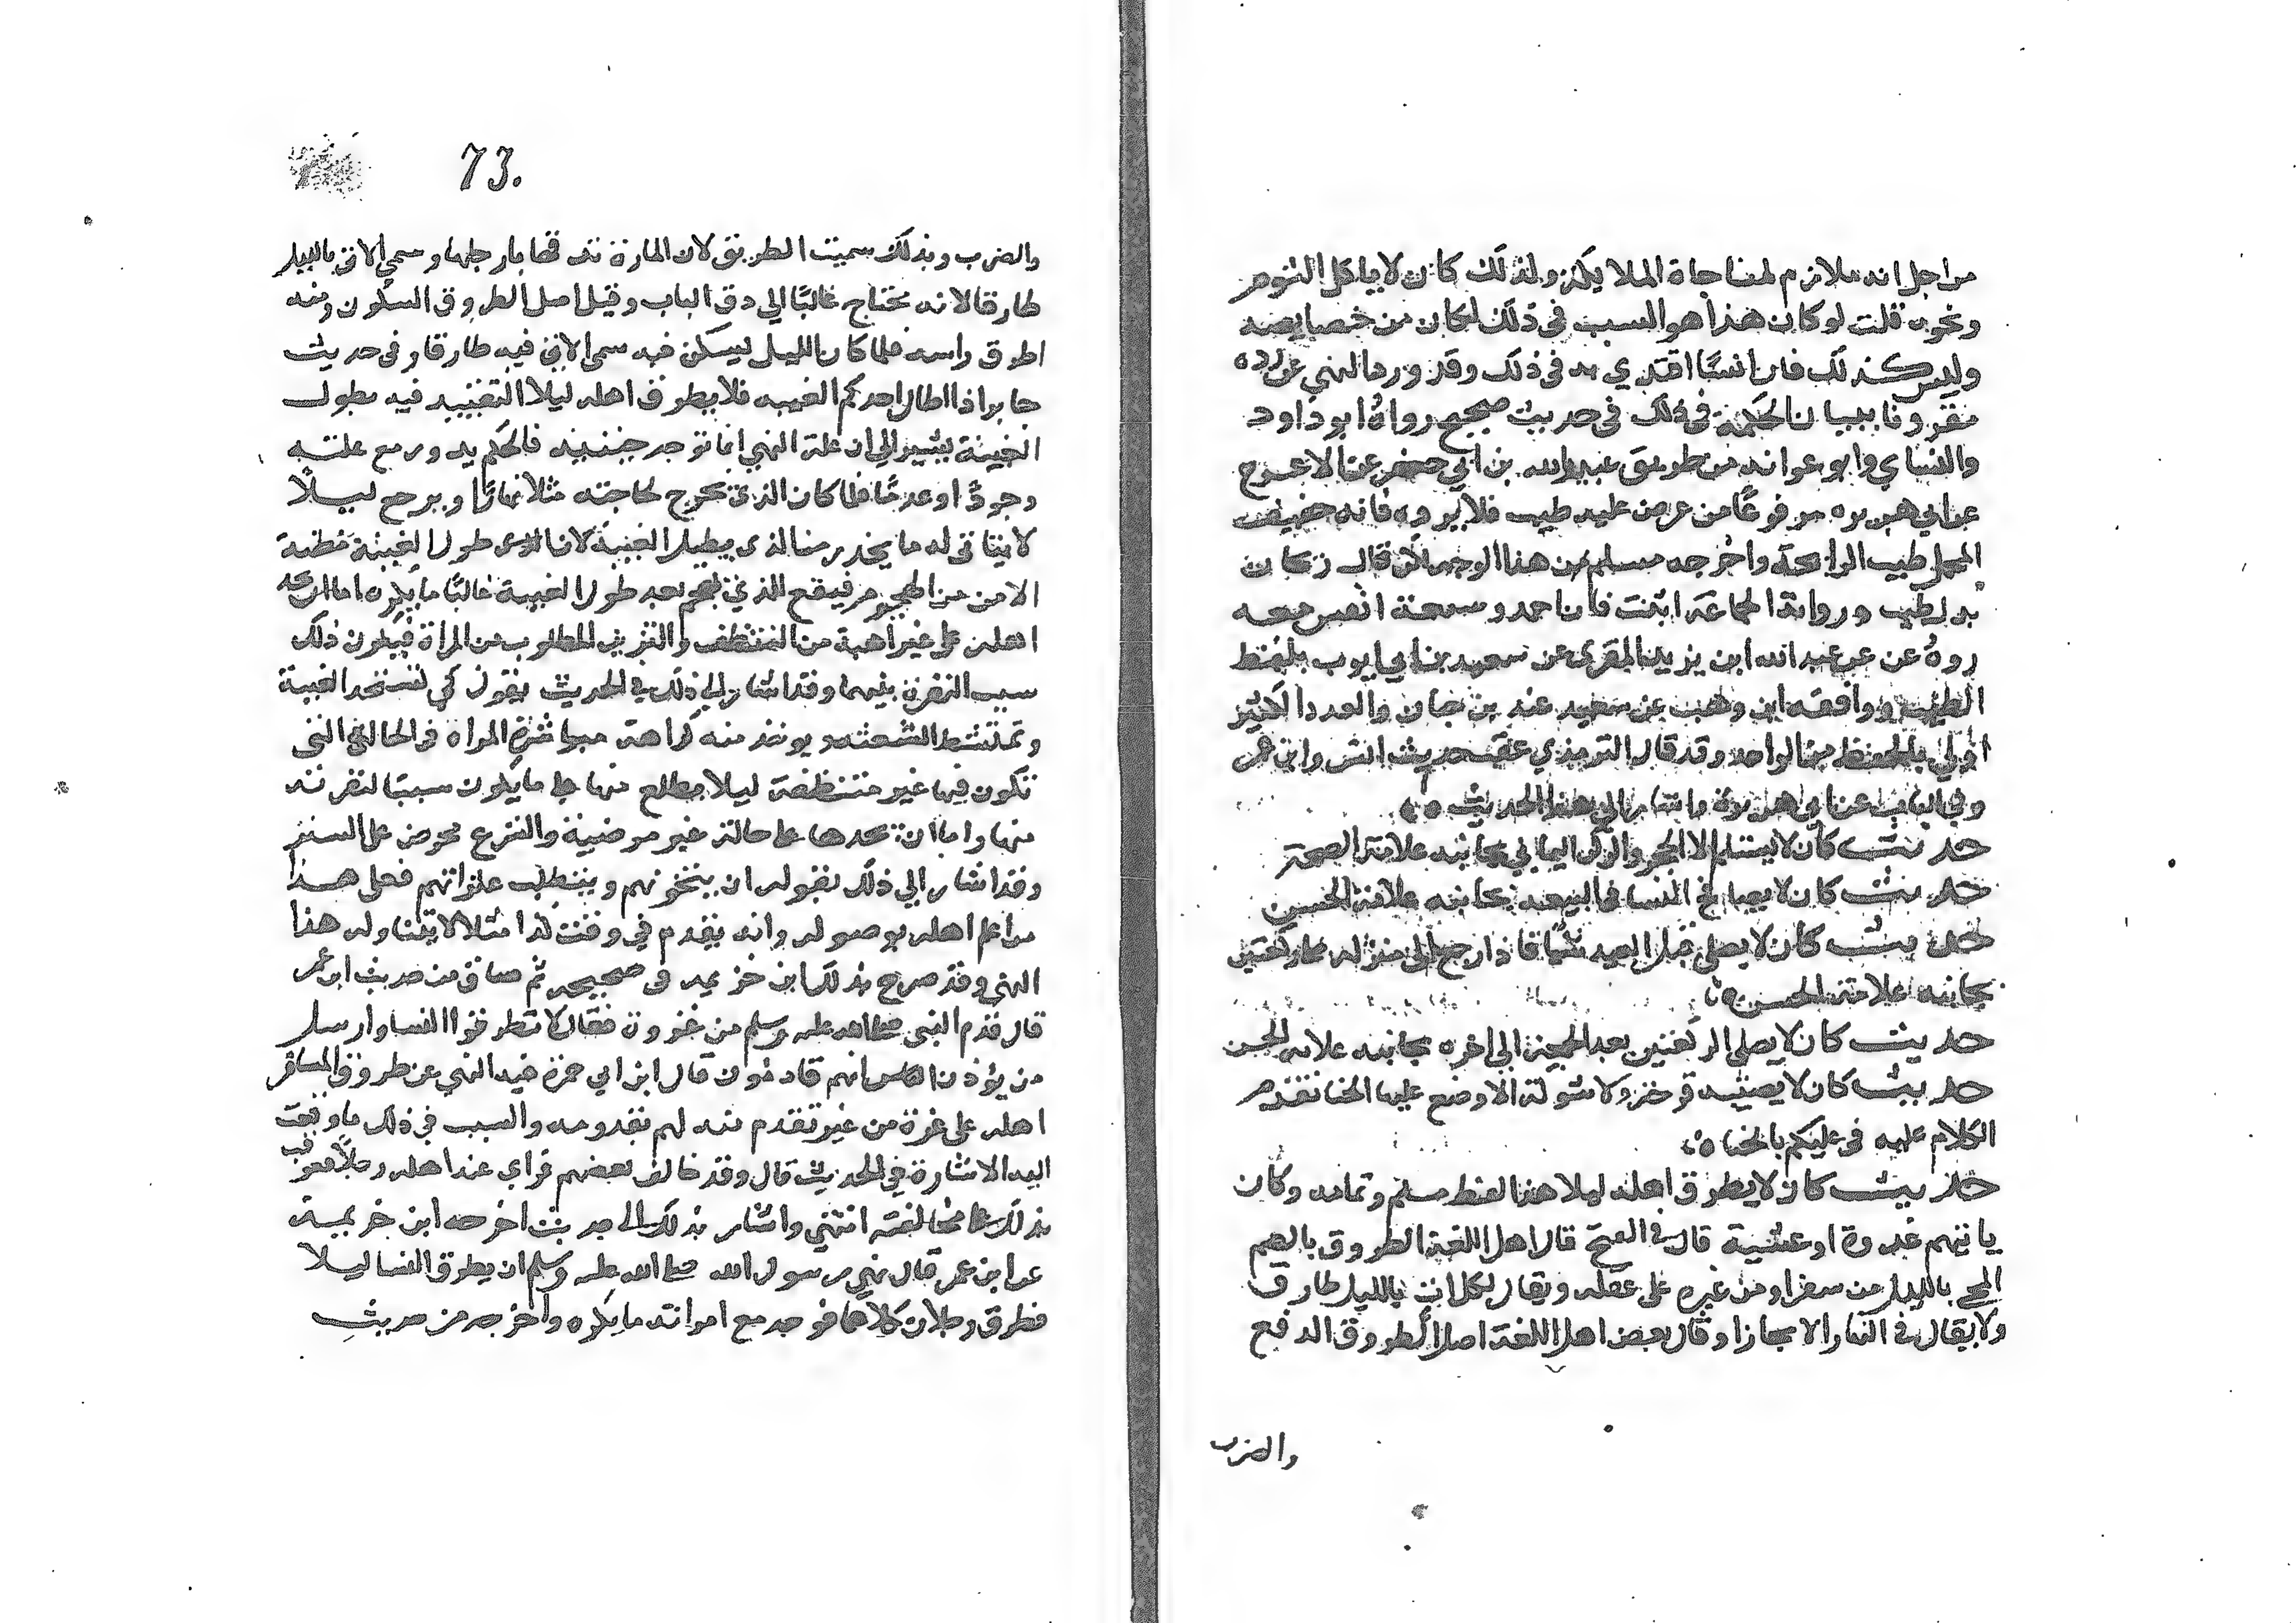 من اجل انه ملازم لمناجاة الملايكة ولذلك كان لا ياكل الثوم
ونحوه قلت لو كان هذا هو السبب في ذلك لكان من خصايصه
وليس كذلك فان انسا اقتدي به في ذلك وقد ورد النهي عن رده
مقرونا ببيان الحكمة في ذلك في حديث صحيح رواه ابو داود
والنساي وابو عوانه من طريق عبيد الله بن ابي جعفر عن الاعرج
عن ابي هريره مرفوعًا من عرض عليه طيب فلا يرده فانه خفيف
المحمل طيب الرايحة واخرجه مسلم من هذا الوجه لكن قال ريحان
بدل طيب ورواية الجماعة اثبت فان احمد وسبعة انفس معه
رووه عن عبد الله ابن يزيد المقري عن سعيد بن ابي ايوب بلفظ
الطيب ووافقه ابن وهب عن سعيد عند بن حبان والعدد الكثير
اولي بالحفظ من الواحد وقد قال الترمذي عقب حديث انس وابن عمر
وفي الباب عن ابي هريرة فاشار الي هذا الحديث
حديث كان لا يستلم الا الحجر والركن اليماني بجانبه علامة الصحة
حديث كان لا يصافح النسا في البيعه بجانبه علامة الحسن
حديث كان لا يصلي قبل العيد شيًا فاذا رجع الي منزله صلي ركعتين
بجانبه علامة الحسن
حديث كان لا يصلي الركعتين بعد الجمعة الي اخره بجانبه علامة الحسن
حديث كان لا يصيبه قرحة ولا شوكة الا وضع عليها الحنا تقدم
الكلام عليه في عليكم بالحناء
حديث كان لا يطرق اهله ليلا هذا لفظ مسلم وتمامه وكان
ياتيهم غدوة او عشية قال في الفتح قال اهل اللغة الطروق بالضم
المجي بالليل من سفر او من غيره على غفله ويقال لكل ات بالليل طارق
ولا يقال في النهار الا مجازا وقال بعض اهل اللغة اصل الطروق الدفع
والضرب
73.
والضرب وبذلك سميت الطريق لان المارة تدقها بارجلها وسمي الاتي بالليل
طارقا لانه يحتاج غالبًا الي دق الباب وقيل اصل الطروق السكون ومنه
اطرق راسه فلما كان الليل يسكن فيه سمي الاتي فيه طارقا وفي حديث
جابر اذا اطال احدكم الغيبه فلا يطرق اهله ليلا التقييد فيه بطول
الغيبة يشير الي ان علة النهي انما توجد حينيذ فالحكم يدور مع علته
وجودًا وعدمًا فلما كان الذي يخرج لحاجته مثلا نهارًا ويرجع ليلًا
لا يتاتى له ما يحذر من الذي يطيل الغيبة لان الذي طول الغيبة مظنة
الامن من الهجوم فيقع الذي يهجم بعد طول الغيبة غالبًا ما يكره اما ان يجد
اهله على غير اهبة من التنظف والتزين المطلوب من المراة فيكون ذلك
سبب النفرة بينهما وقد اشار الي ذلك في الحديث بقوله كي تستحد المغيبة
وتمتشط الشعثه ويوخذ منه كراهة مباشرة المراه في الحالة التي
تكون فيها غير متنظفة ليلا يطلع منها على ما يكون سببًا لنفرته
منها واما ان يجدها على حالة غير مرضية والشرع محرض على الستر
وقد اشار الي ذلك بقوله ان يتخونهم ويتطلب عثراتهم فعلى هذا
من اعلم اهله بوصوله وانه يقدم في وقت كذا مثلا لا يتناوله هذا
النهي وقد صرح بذلك ابن خزيمه في صحيحه ثم ساق من حديث ابن عمر
قال قدم النبي صلى الله عليه وسلم من غزوة فقال لا تطرقوا النسا وارسل
من يؤذن الناس انهم قادمون قال ابن ابي جمرة فيه النهي عن طروق المسافر
اهله على غرة من غير تقدم منه لهم بقدومه والسبب في ذلك ما وقعت
اليه الاشارة في الحديث قال وقد خالف بعضهم فراي عند اهله رجلًا فعوقب
بذلك على مخالفته انتهي واشار بذلك الي حديث اخرجه ابن خزيمة
عن ابن عمر قال نهي رسول الله صلى الله عليه وسلم ان يطرق النسا ليلا
فطرق رجلان كلاهما فوجد مع امراته ما يكره واخرجه من حديث